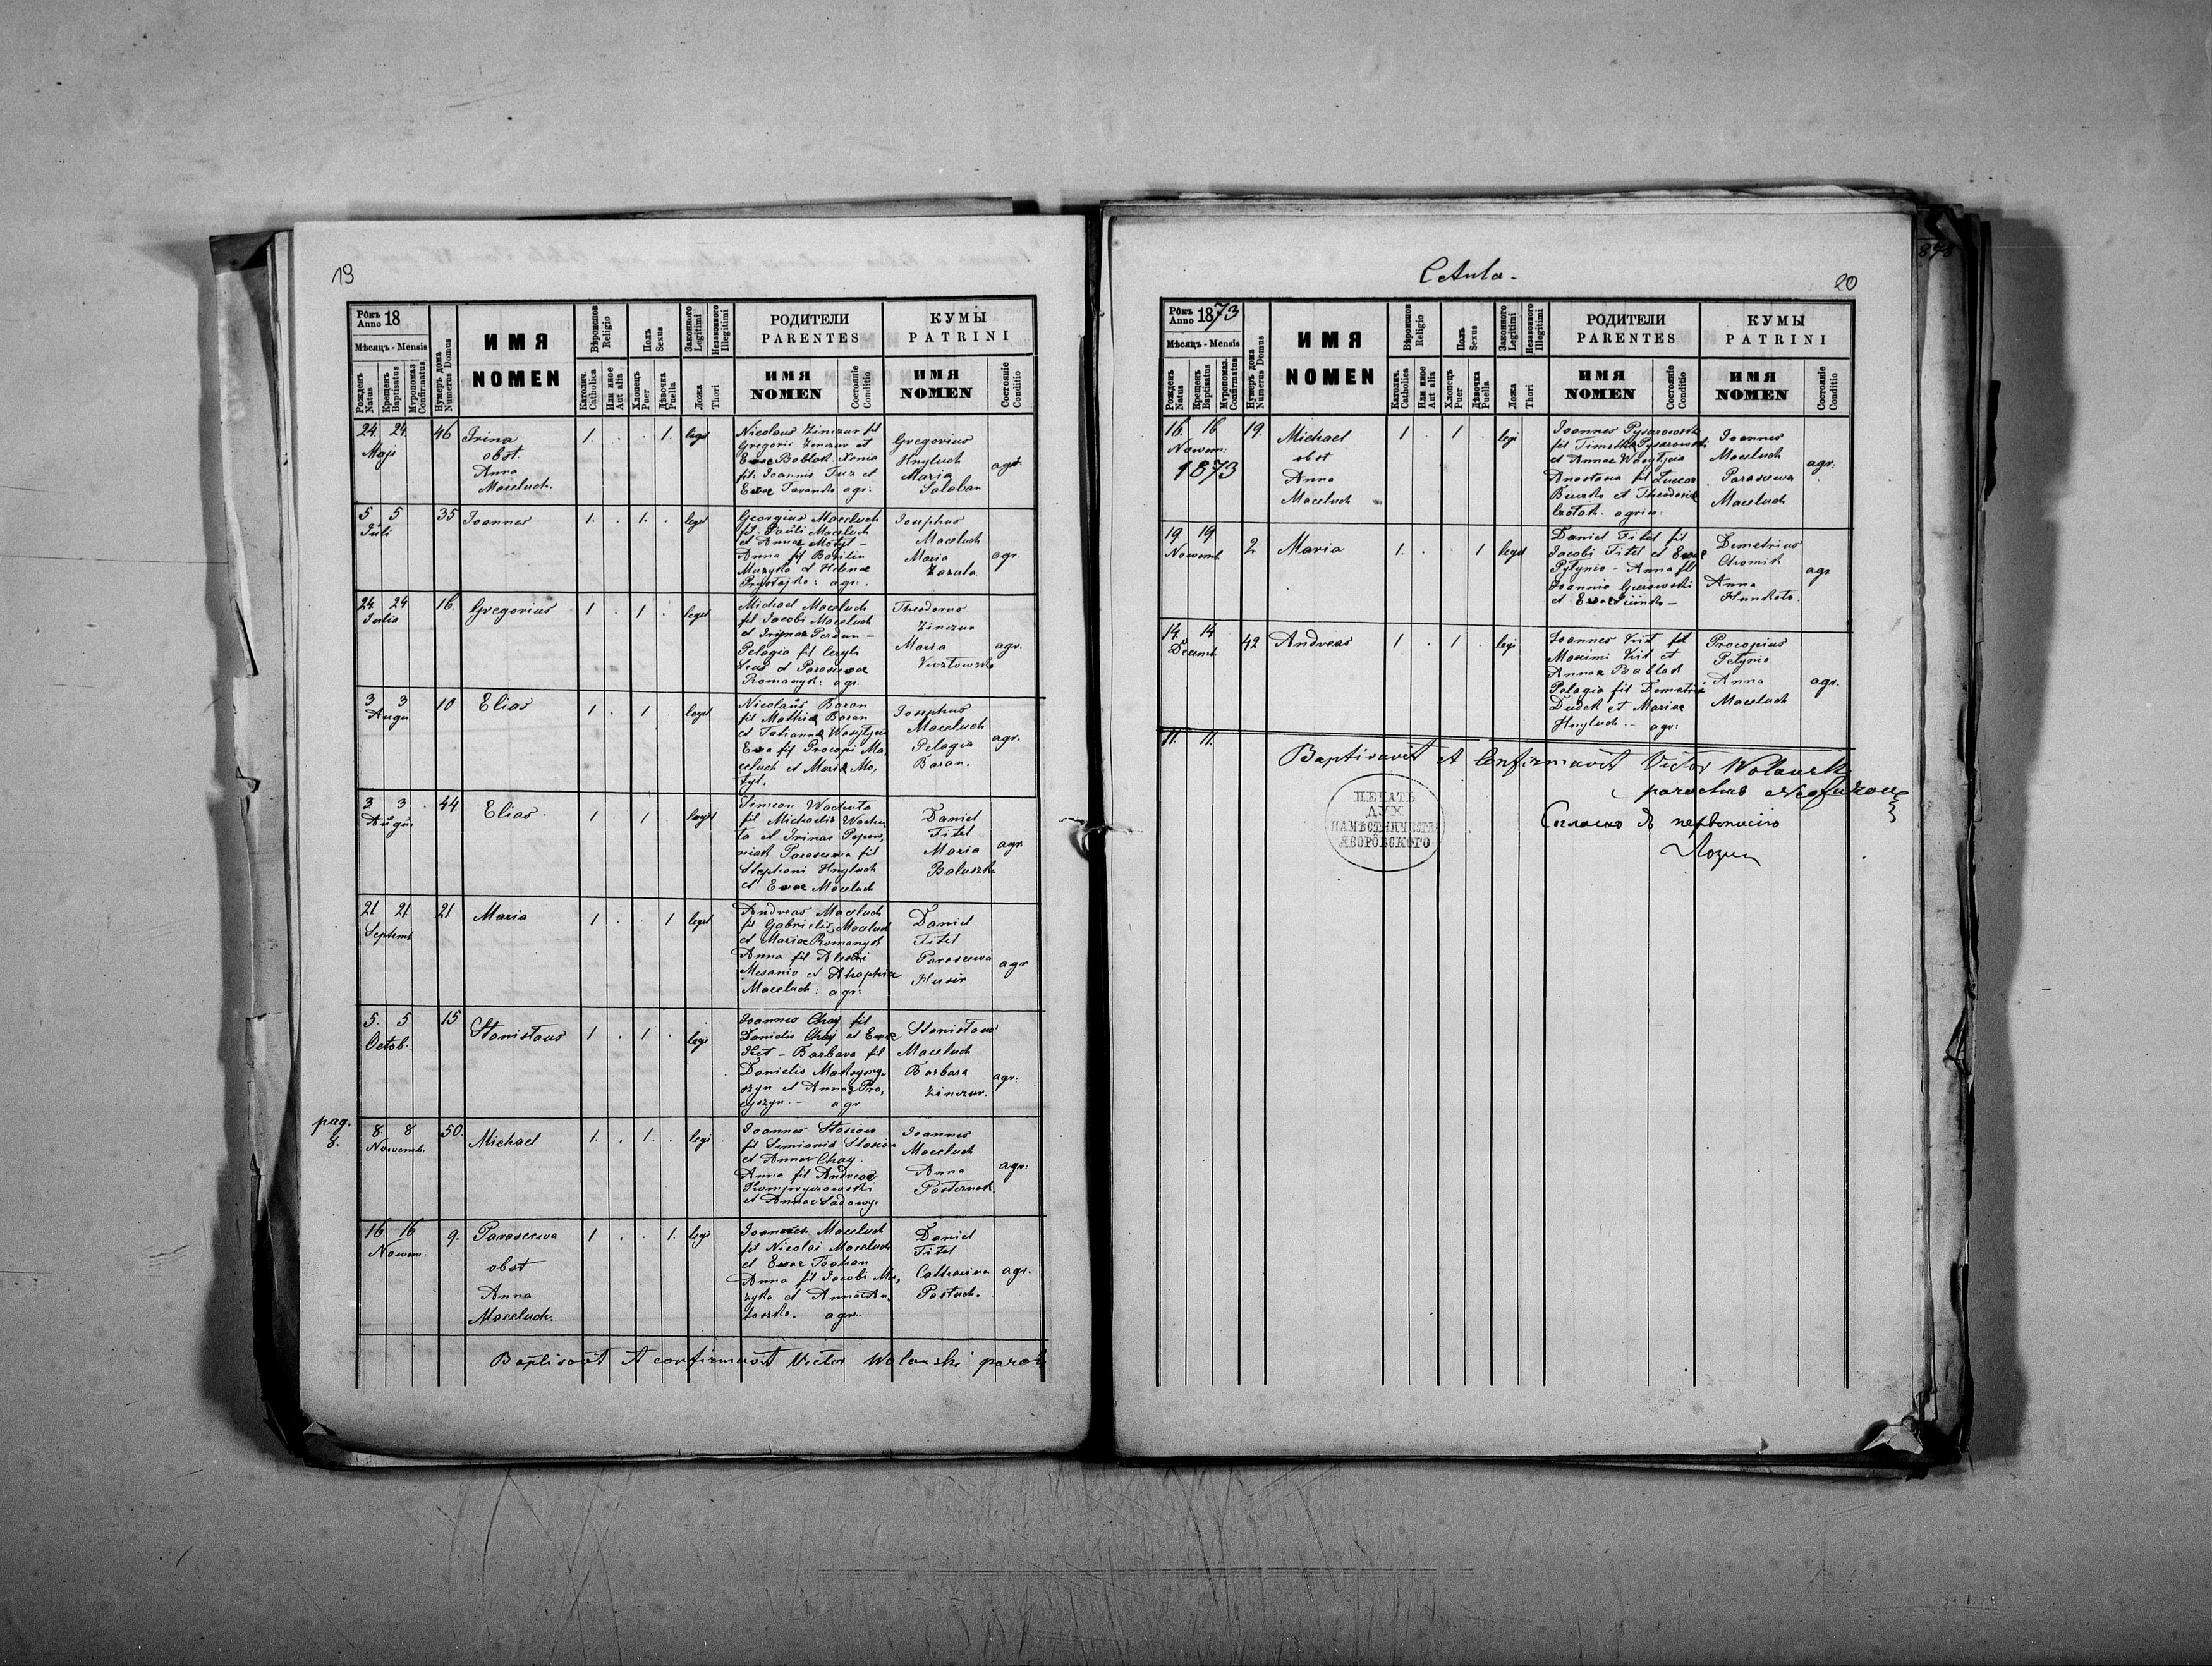 19
Рôкъ Anno 18
Мѣсяцъ - Mensis
Рожденъ Natus
Крещенъ Baptisatus
Муропомаз. Confirmatus
Нумеръ дома Numerus Domus
ИМЯ
NOMEN
Вѣроиспов Religio
Католич. Catholica
Или иное Aut alia
Полъ Sexus
Хлопецъ Puer
Дѣвочка Puella
Законного Legitimi
Незаконного Illegitimi
Ложа Thori
РОДИТЕЛИ
PARENTES
ИМЯ
NOMEN
Состояніе Conditio
КУМЫ
PATRINI
ИМЯ
NOMEN
Состояніе Conditio
24 24 Maji 46
Irina
obst
Anna
Maceluch.
1. . . 1. legit
Nicolaus Zinczur fil
Gregorii Zinczur et
Evae Bablak Xenia
fil: Joannis Fuz et
Evae agr:
Gregorius
Hnyluch
Maria
Salaban
agr.
5 5 Juli 35
Joannes
1. . 1. . legit
Georgius Maceluch
fil. Pauli Maceluch
et Annae Motyl -
Anna fil Basilii
Muzyka et Helenae
agr.
Josephus
Maceluch
Maria
Zazula
agr.
24 24 Julio 16
Gregorius
1 . 1 . legit
Michael Maceluch
fil Jacobi Maceluch
et
Pelagia fil
et Parascevae
Romanyk: agr.
Theodorus
Zinczur
Maria
agr.
3 3 Augu 10
Elias
1 . 1 . legit
Nicolaus Baran
fil Mathiae Baran
et Tatianna
Eva fil Procopi Ma,
celuch et Mariae Mo,
tyl.
Josephus
Maceluch
Pelagia
Baran.
agr.
3 3 Augu 44
Elias
1 . 1 . legit
Simeon Wachuta
fil Michaelis Wachu
ta et Irinae
Parascewa fil
Stephani Hnyluch
et Evae Maceluch
Daniel
Fitel
Maria
Baluszka
agr.
21 21 Septemb 21
Maria
1 . . 1 legit
Andreas Maceluch
fil Gabrielis Maceluch
et Mariae Romanyk
Anna fil
et
Maceluch: agr:
Daniel
Fitel
Parascewa
Husir
agr
5. 5 Octob. 15
Stanislaus
1 . 1 . legi
Joannes Chaj fil
Danielis Chaj et Evae
Kit - Barbara fil
Danielis
et Annae
agr
Stanislaus
Maceluch
Barbara
Zinczur.
agr.
pag. 8.
8. 8 Novemb. 50.
Michael
1. . 1. . legi
Joannes Stasiow
fil Simionis Stasiow
et Annae Chaj.
Anna fil Andreae
et Annae Sadowy.
Joannes
Maceluch
Anna
Pasternak
agr:
16 16 Novem. 9.
Parascewa
obst
Anna
Maceluch.
1 . . 1. legi
Maceluch
fil Nicolai Maceluch
et Evae
Anna fil Jacobi Mu,
zyka et Annae
agr.
Daniel
Fitel
Catharina
Pastuch.
agr.
Baptisavit et confirmavit Victor Wolanski paroch
Cetula.
20
Рôкъ Anno 1873
Мѣсяцъ - Mensis
Рожденъ Natus
Крещенъ Baptisatus
Муропомаз. Confirmatus
Нумеръ дома Numerus Domus
ИМЯ
NOMEN
Вѣроиспов Religio
Католич. Catholica
Или иное Aut alia
Полъ Sexus
Хлопецъ Puer
Дѣвочка Puella
Законного Legitimi
Незаконного Illegitimi
Ложа Thori
РОДИТЕЛИ
PARENTES
ИМЯ
NOMEN
Состояніе Conditio
КУМЫ
PATRINI
ИМЯ
NOMEN
Состояніе Conditio
16. 16 Novem: 1873 19.
Michael
obst
Anna
Maceluch
1 . 1 . legi
Joannes Pysarowski
fil Timothei Pysarowski
et Annae
Anastasia fil Lucae
et Theodosiae
Joannes
Maceluch
Parascewa
Maceluch
agr:
19 19 Novemb 2
Maria
1. . . 1 legit
Daniel Fitel fil
Jacobi Fitel et Evae
Pytynio - Anna fil
Joannis
et Evae
Demetrius
Chomik
Anna
agr
14. 14 Decemb. 42
Andreas
1. . 1. . legi
Joannes Kit fil
Maximi Kit et
Annae Bablak
Pelagia fil Demetrii
Dudek et Mariae
Hnyluch. - agr:
Procopius
Petynio
Anna
Maceluch
agr.
11. 11.
Baptisavit et Confirmavit Victor Wolanski
parochus
ПЕЧАТЬ
ДУХ
НАМѢСТНИЧЕСТВ
ЯВОРÔВСКОГО
Согласно съ первописію